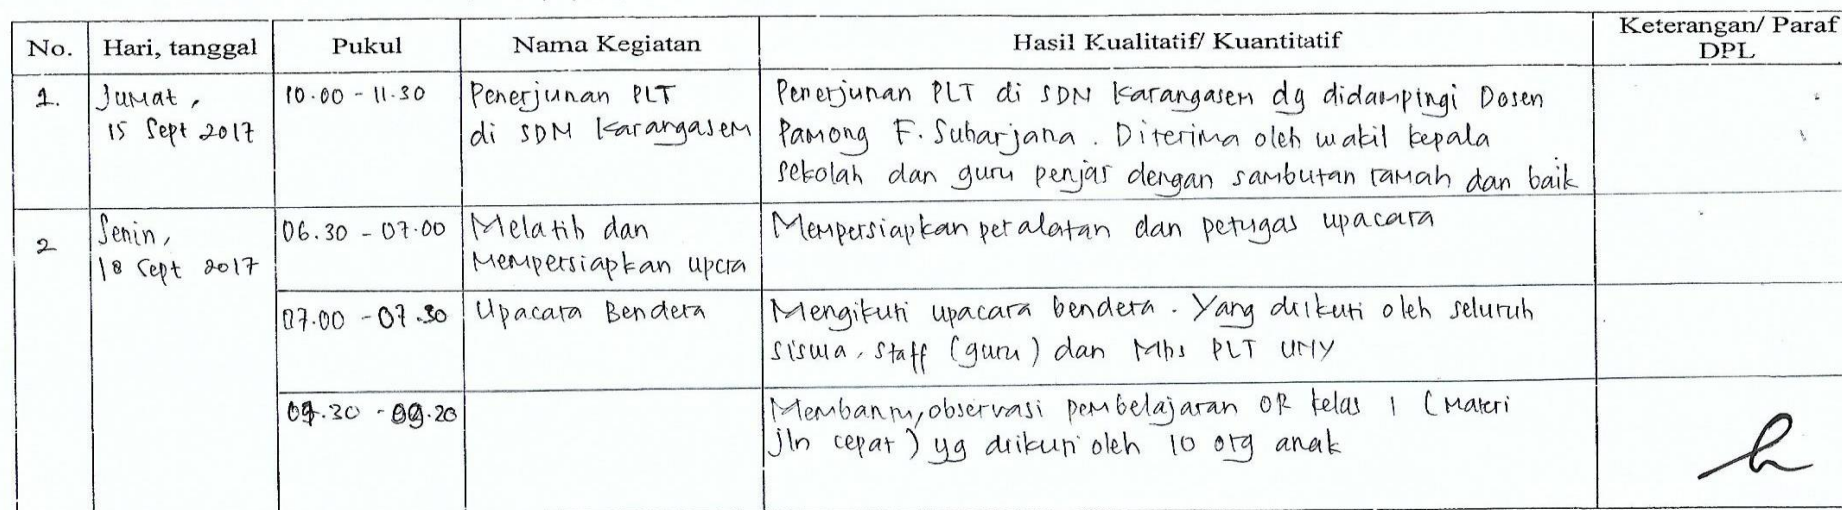 No. Hari, tanggal Pukul Nama Kegiatan Hasil Kualitatif/ Kuantitatif Keterangan/ Paraf DPL
1. Jumat, 15 Sept 2017
10.00 - 11.30
Penerjunan PLT
di SDN Karangasem
Penerjunan PLT di SDN Karangasem dg didampingi Dosen
Pamong F. Suharjana. Diterima oleh wakil kepala
sekolah dan guru penjas dengan sambutan ramah dan baik
2 Senin, 18 Sept 2017
06.30 - 07.00
Melatih dan
Mempersiapkan upcra
Mempersiapkan peralatan dan petugas upacara
07.00 - 07.30
Upacara Bendera
Mengikuti upacara bendera. Yang diikuti oleh seluruh
siswa, staff (guru) dan Mhs PLT UNY
Membantu, observasi pembelajaran OR kelas 1 (Materi
jln cepat) yg diikuti oleh 10 org anak